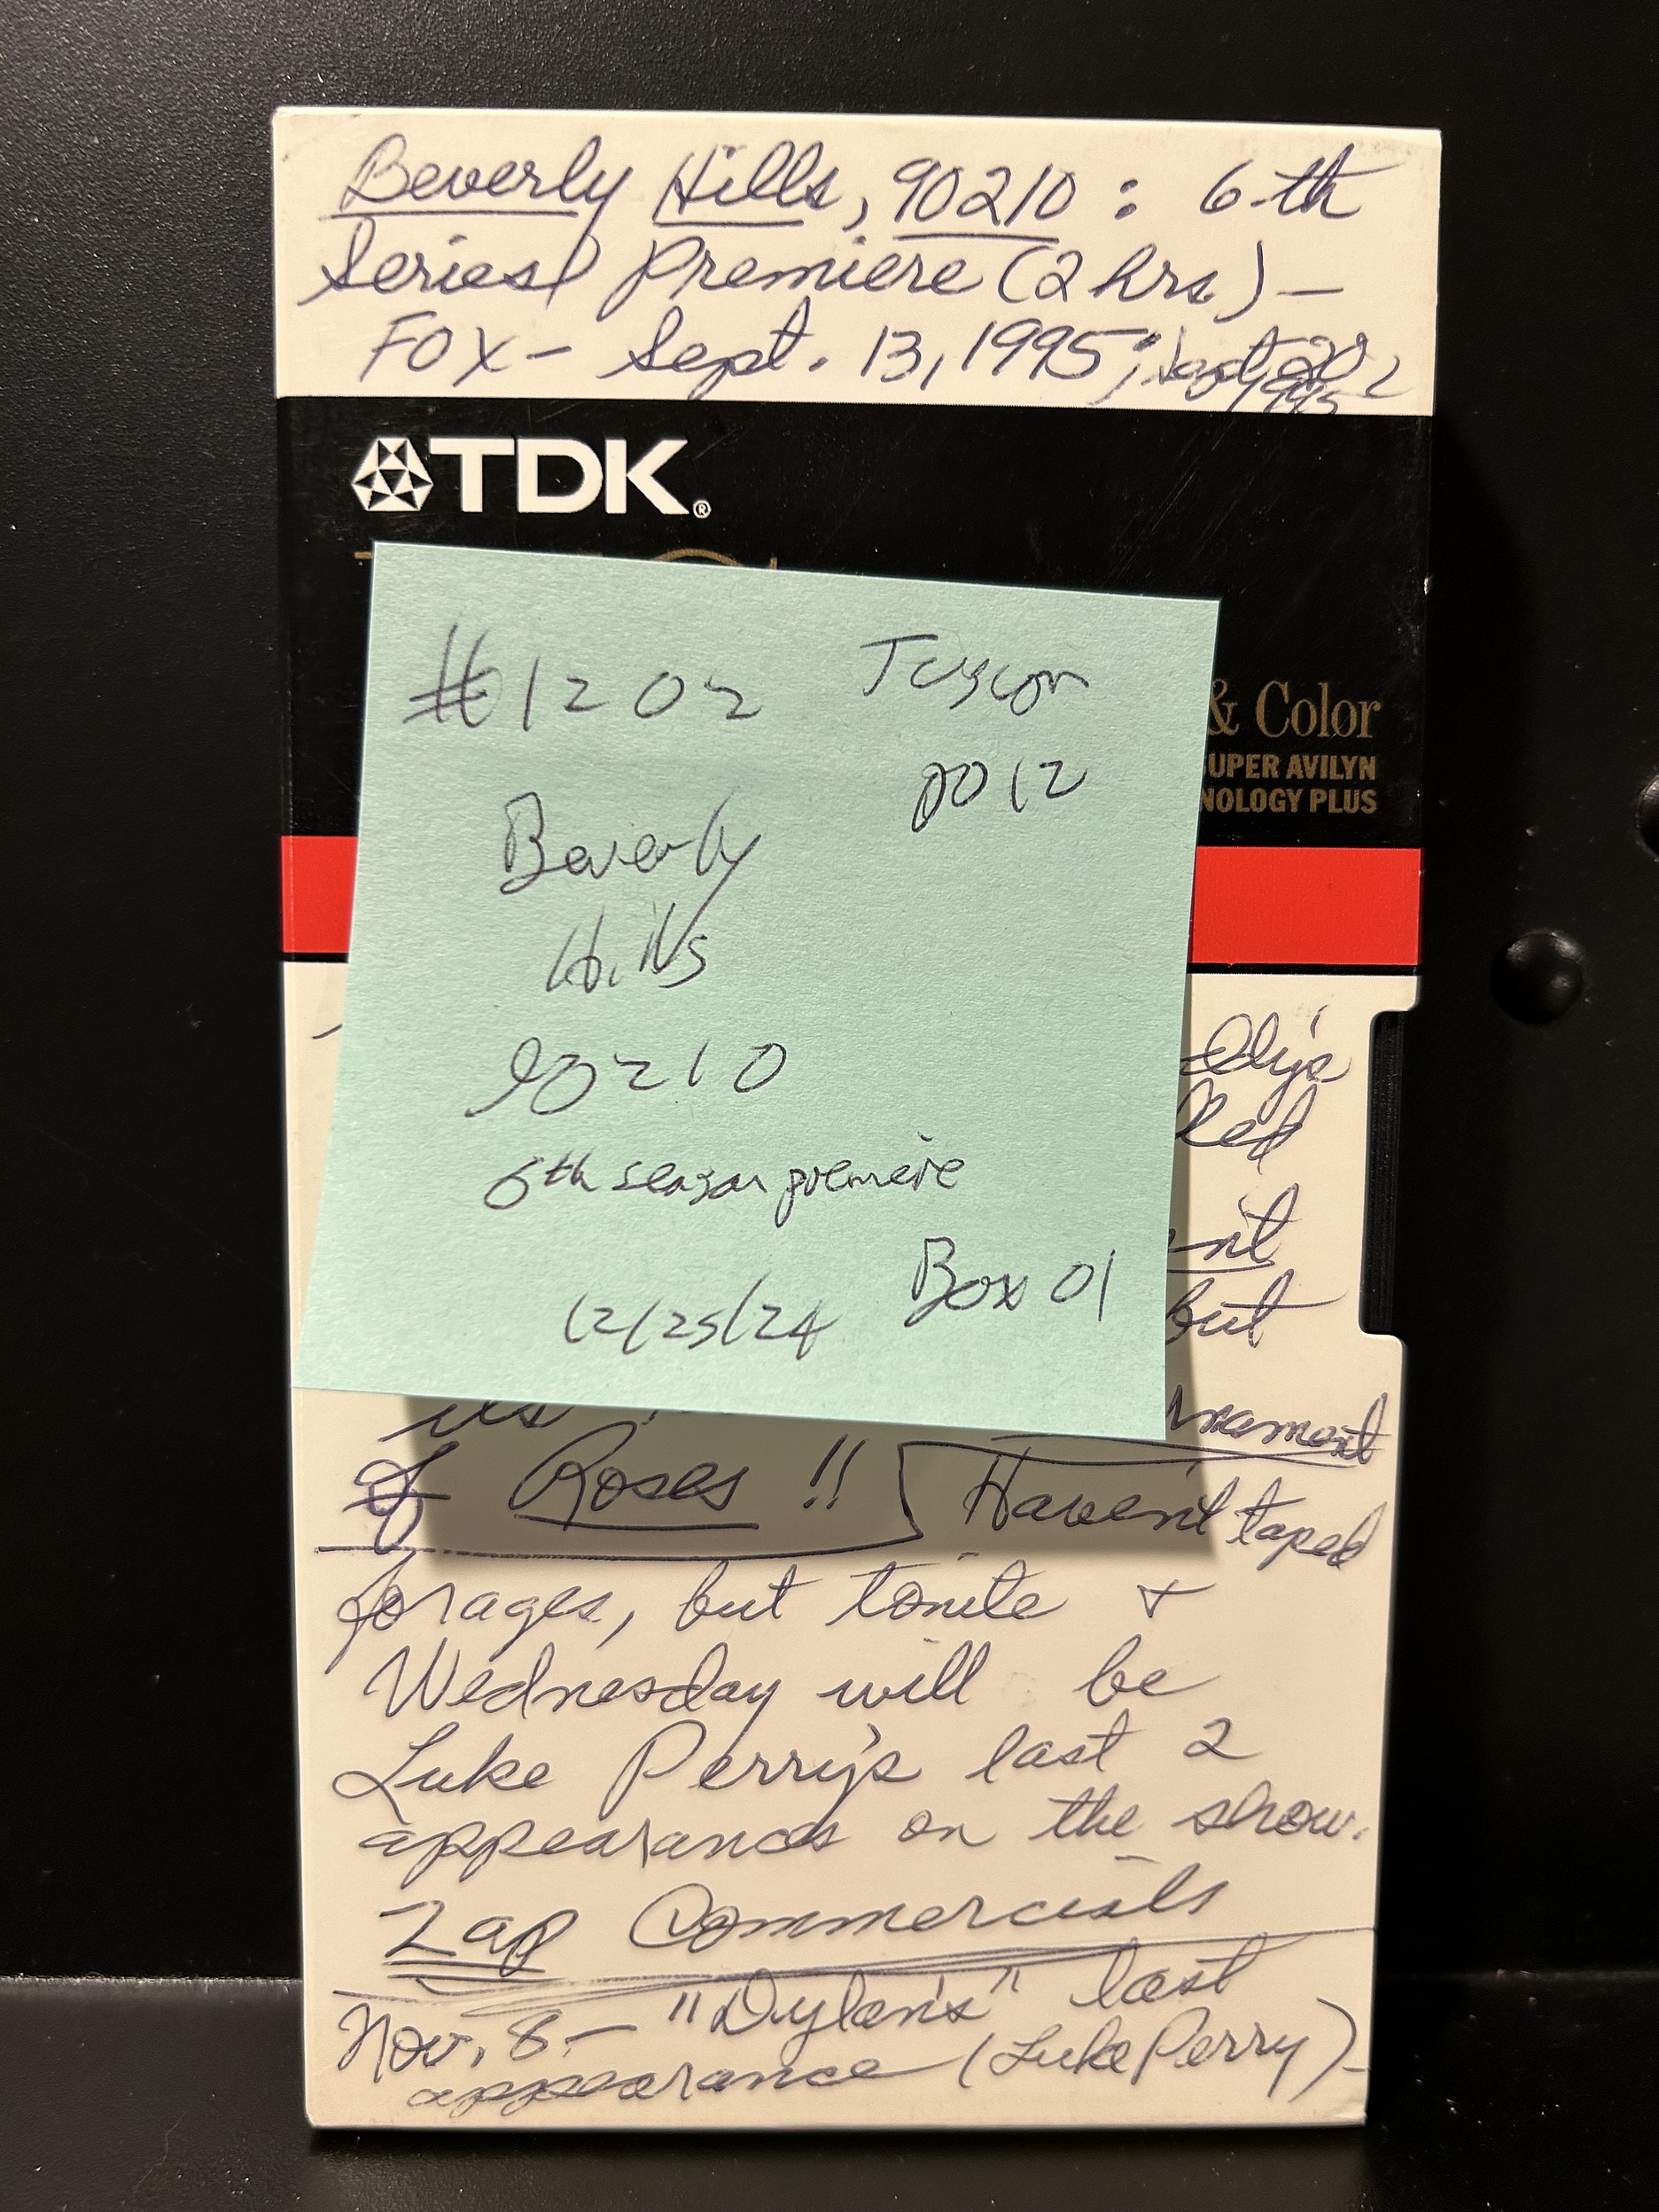 Beverly Hills, 90210 : 6th
Series Premiere (2 hrs.) —
FOX – Sept. 13, 1995; Sept 20,
1995
TDK®
& Color
UPER AVILYN
NOLOGY PLUS
#1202
0012
Beverly
Hills
90210
6th season premiere
Box 01
12/25/24
but
of Roses !! Haven't taped
for ages, but tonite +
Wednesday will be
Luke Perry's last 2
appearances on the show.
Zap Commercials
Nov. 8 – "Dylan's" last
appearance (Luke Perry) –